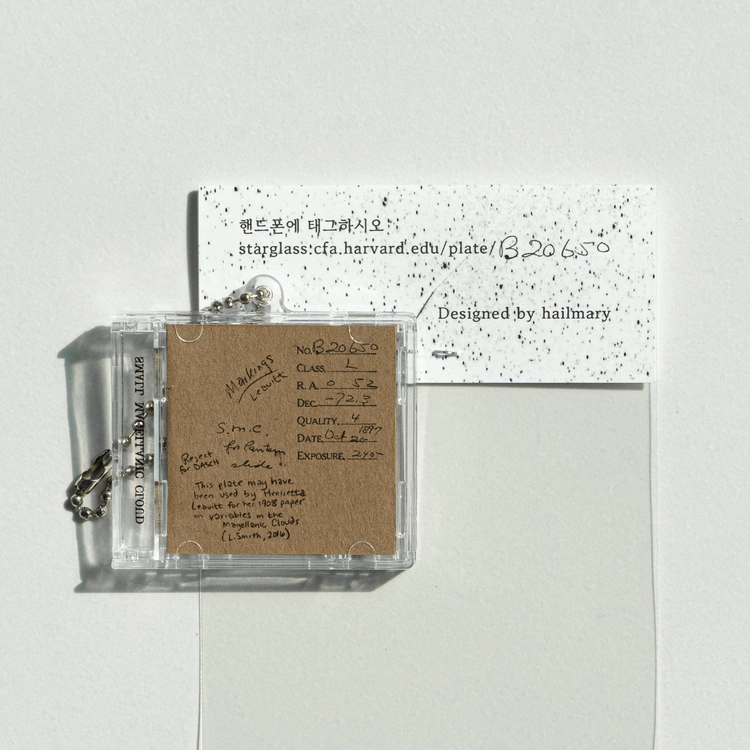 핸드폰에 태그하시오
starglass.cfa.harvard.edu/plate/B20650
Designed by hailmary
SMALL MAGELLANIC CLOUD
Markings
Leavitt
S.M.C.
for lantern
slide
Reject
for DASCH
This plate may have
been used by Henrietta
Leavitt for her 1908 paper
on variables in the
Magellanic Clouds
(L. Smith, 2016)
No. B20650
CLASS L
R. A. 0 52
DEC. -72.3
QUALITY, 4
DATE, Oct 20 1897
EXPOSURE, 240